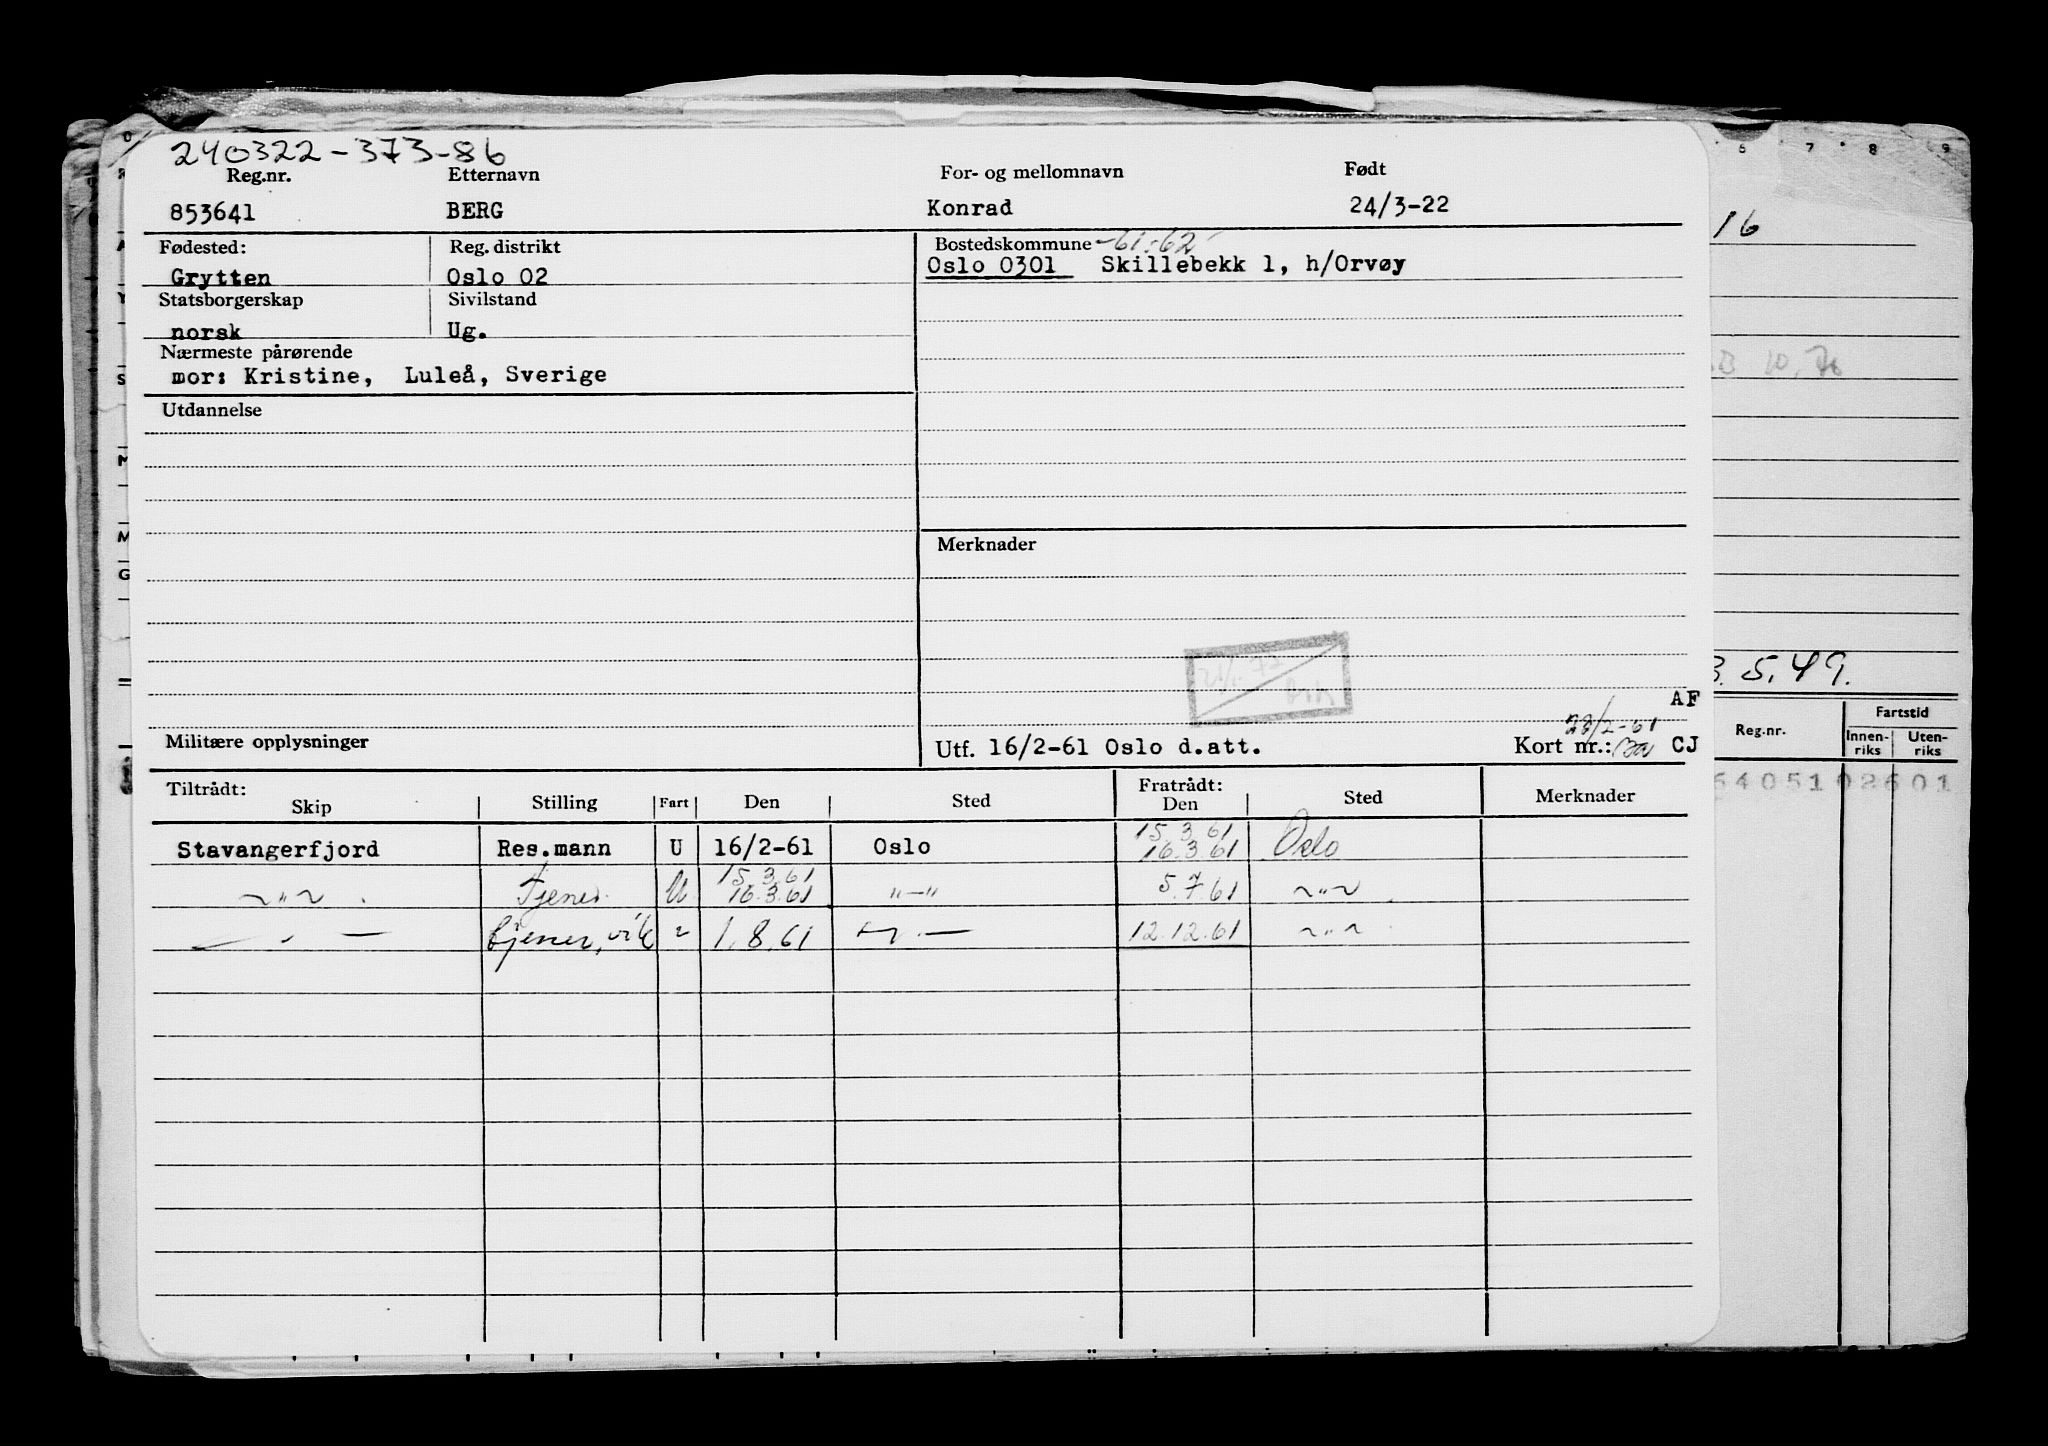 240322-373-86
Reg.nr. Etternavn For- og mellomnavn Født
853641 BERG Konrad 24/3-22
Fødested: Reg. distrikt Bostedskommune -61-62
Grytten Oslo 02 Oslo 0301 Skillebekk 1, h/Orvøy
Statsborgerskap Sivilstand
norsk Ug.
Nærmeste pårørende
mor: Kristine, Luleå, Sverige
Utdannelse
Merknader
AF
Militære opplysninger Utf. 16/2-61 Oslo d.att. Kort nr.: CJ
Tiltrådt: Fratrådt:
Skip Stilling Fart Den Sted Den Sted Merknader
15.3.61
Stavangerfjord Res.mann U 16/2-61 Oslo 16.3.61 Oslo
15.3.61
~"~ Tjener U 16.3.61 "—" 5.7.61 ~"~
tjener, vik 1.8.61 12.12.61 ~"~
6 7 8 9
16
10.
3.5.49.
Reg.nr. Fartstid
Innen-riks Uten-riks
5405102601